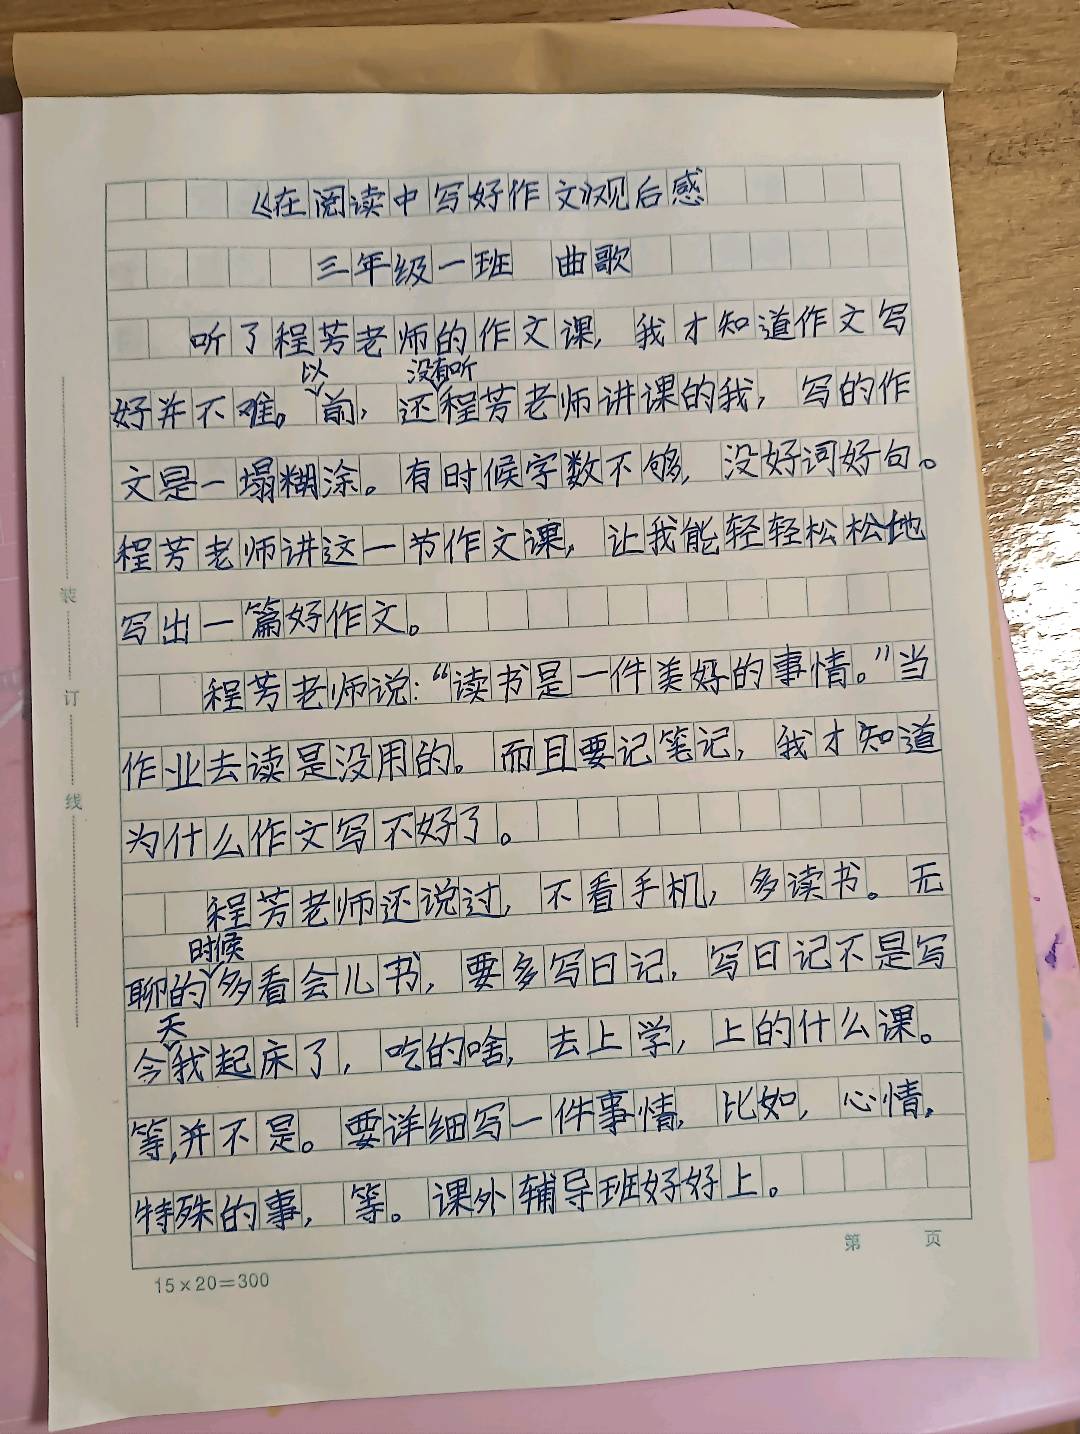 《在阅读中写好作文》观后感
三年级一班 曲歌
听了程芳老师的作文课，我才知道作文写
以 没有听
好并不难。前，还程芳老师讲课的我，写的作
文是一塌糊涂。有时候字数不够，没好词好句。
程芳老师讲这一节作文课，让我能轻轻松松地
写出一篇好作文。
程芳老师说：“读书是一件美好的事情。”当
作业去读是没用的。而且要记笔记，我才知道
为什么作文写不好了。
程芳老师还说过，不看手机，多读书。无
时候
聊的多看会儿书，要多写日记，写日记不是写
天
今我起床了，吃的啥，去上学，上的什么课。
等，并不是。要详细写一件事情，比如，心情，
特殊的事，等。课外辅导班好好上。
装
订
线
15×20=300
第 页